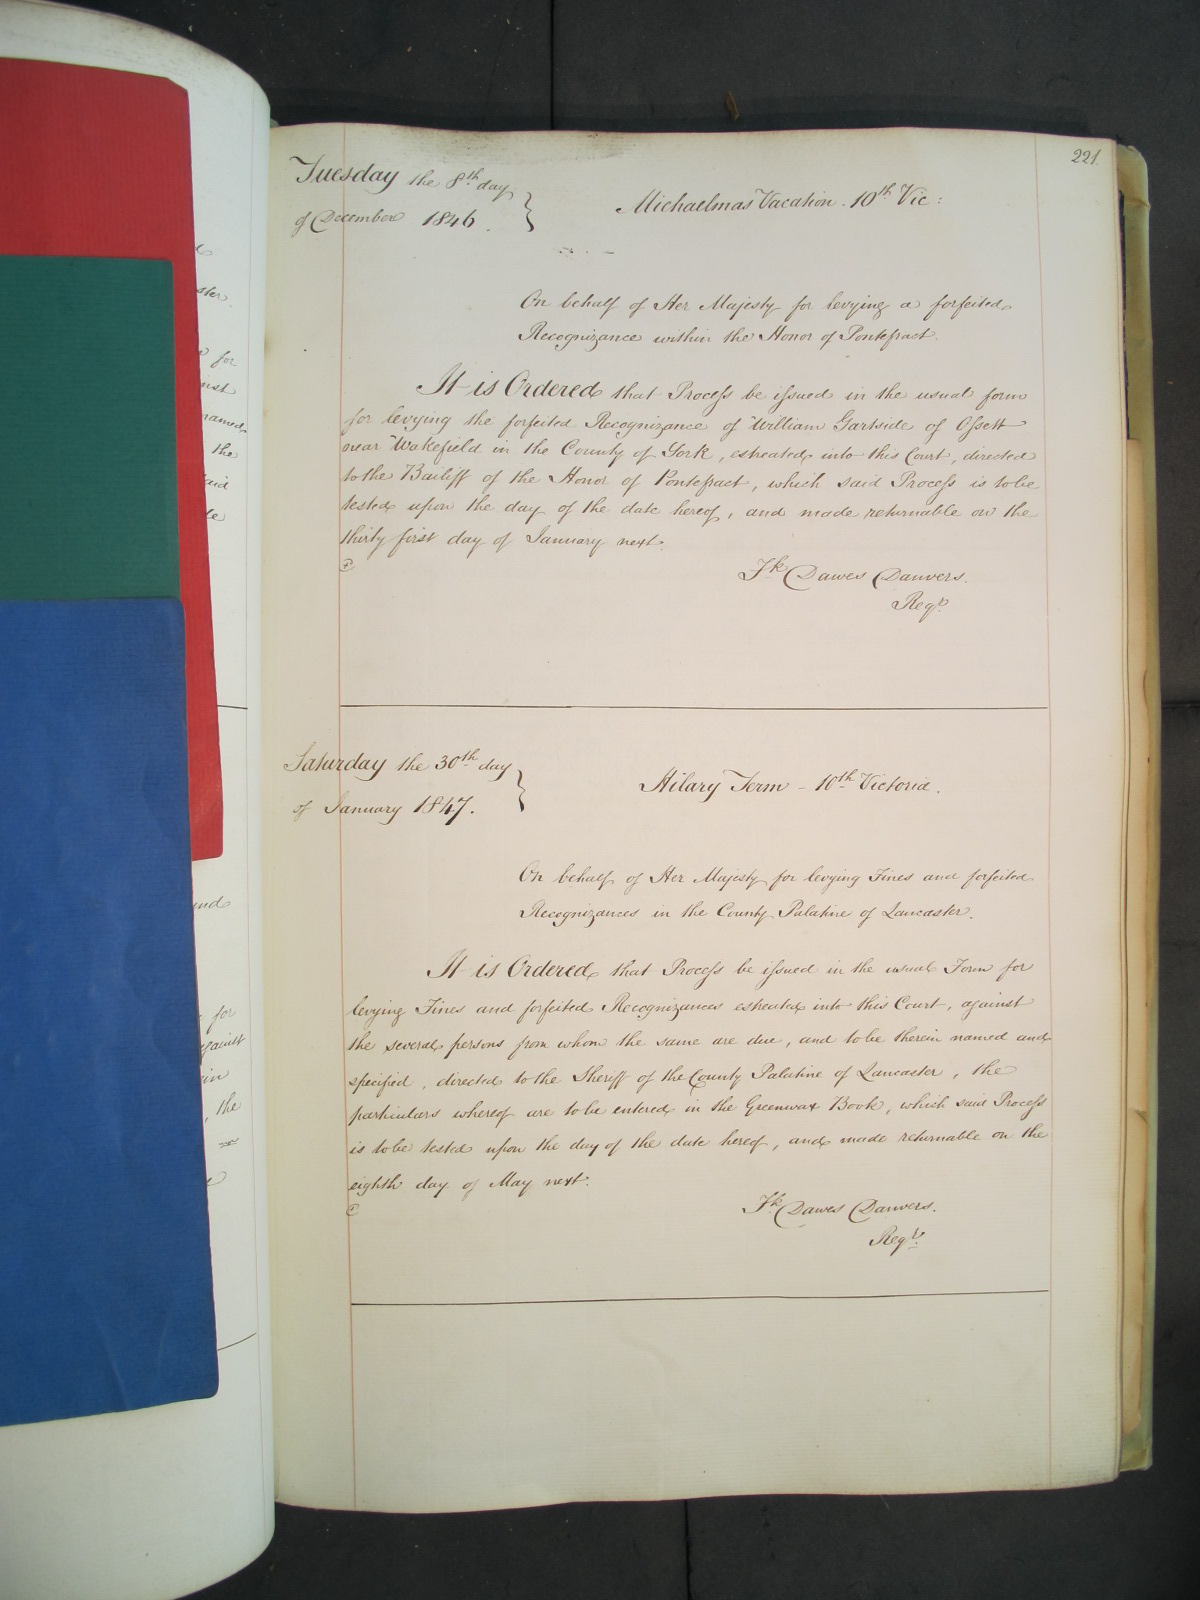 221.
Tuesday the 8th day
of December 1846.
Michaelmas Vacation. 10th Vic:
On behalf of Her Majesty for levying a forfeited
Recognizance within the Honor of Pontefract.
It is Ordered that Process be issued in the usual form
for levying the forfeited Recognizance of William Gartside of Ossett
near Wakefield in the County of York, estreated into this Court, directed
to the Bailiff of the Honor of Pontefract, which said Process is to be
tested upon the day of the date hereof, and made returnable on the
thirty first day of January next.
Fk Dawes Danvers.
Regr.
Saturday the 30th day
of January 1847.
Hilary Term - 10th Victoria.
On behalf of Her Majesty for levying Fines and forfeited
Recognizances in the County Palatine of Lancaster.
It is Ordered that Process be issued in the usual Form for
levying Fines and forfeited Recognizances estreated into this Court, against
the several persons from whom the same are due, and to be therein named and
specified, directed to the Sheriff of the County Palatine of Lancaster, the
particulars whereof are to be entered in the Greenwax Book, which said Process
is to be tested upon the day of the date hereof, and made returnable on the
eighth day of May next.
Fk Dawes Danvers.
Regr.